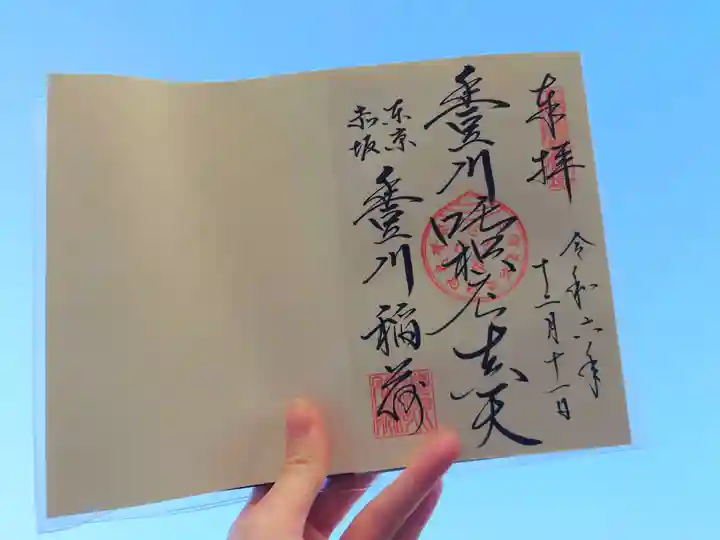 奉拝
令和六年
十二月十一日
豊川吒枳尼真天
東京
赤坂
豊川稲荷